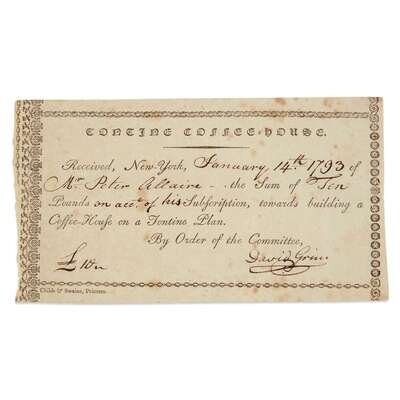 TONTINE COFFEE-HOUSE.
Received, New-York, January 14th. 1793 of
Mr. Peter Allaire - the Sum of Ten
Pounds on acct. of his Subſcription, towards building a
Coffee-Houſe on a Tontine Plan.
By Order of the Committee,
£10
David Grim.
Childs & Swaine, Printers.